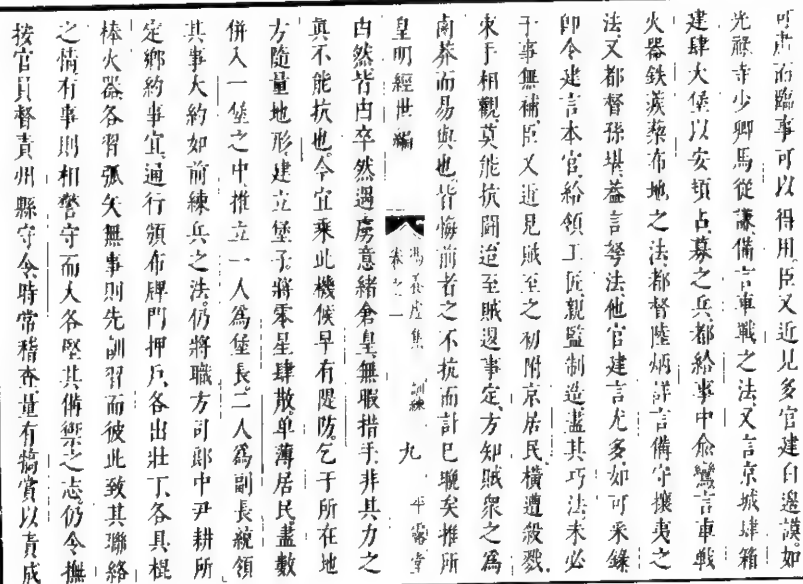 可肅而臨事可以得用臣又近見多官建白邊謨如
光祿寺少卿馬從謙備言車戰之法又言京城肆箱
建肆大堡以安頓占募之兵都給事中俞鸞言車戰
火器鉄蒺藜布地之法都督陸炳詳言備守攘夷之
法又都督孫堪益言弩法他官建言尤多如可采錄
卽令建言本官給領工匠親監制造盡其巧法未必
于事無補臣又近見賊至之初附京居民橫遭殺戮
束手相觀莫能抗鬪迨至賊退事定方知賊衆之為
鹵莽而易與也皆悔前者之不抗而計已晚矣推所
皇明經世編
卷之一
訓練
九
平露堂
由然皆由卒然遇虜意緒倉皇無暇措手非其力之
真不能抗也今宜乘此機候早有隄防乞于所在地
方隨量地形建立堡子將零星肆散单薄居民盡數
併入一堡之中推立一人為堡長二人為副長統領
其事大約如前練兵之法仍將職方司郎中尹耕所
定鄉約事宜通行頒布牌門押戶各出壯丁各具棍
棒火器各習弧矢無事則先訓習而彼此致其聯絡
之情有事則相警守而人各堅其備禦之志仍令撫
按官員督責州縣守令時常稽查量有犒賞以責成